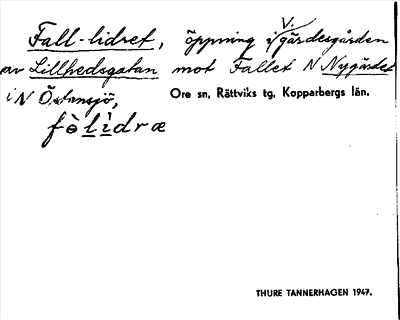 Fall-lidret, öppning i v. gärdesgården
av Lillhedsgatan mot Fallet N Nygärdet
i N Östansjö,
Ore sn, Rättviks tg, Kopparbergs län.
fὲlìdræ
THURE TANNERHAGEN 1947.